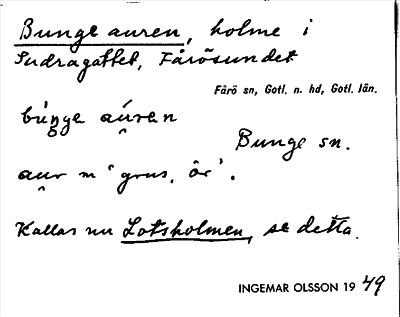 Bunge auren, holme i
Sudragattet, Fårösundet
Fårö sn, Gotl. n. hd, Gotl. län.
búŋge a̯úren
Bunge sn.
au̯r m "grus, ör".
Kallas nu Lotsholmen, se detta.
INGEMAR OLSSON 1949